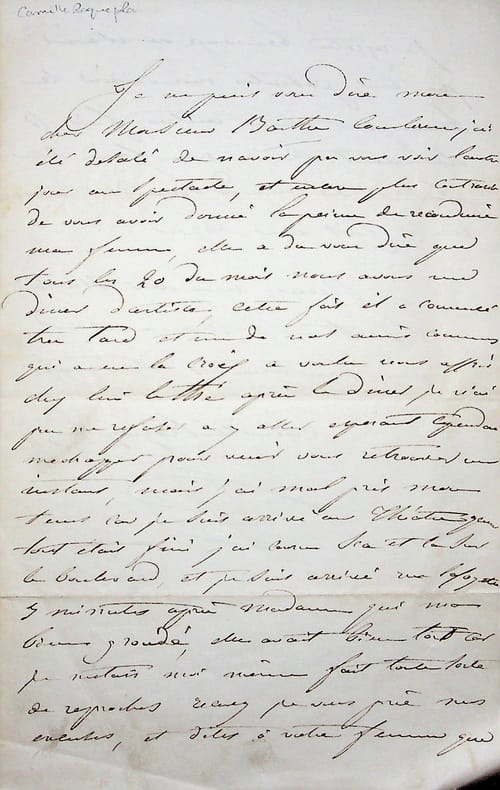 Camille Roqueplan
Je ne puis vous dire mon
cher Monsieur Barthe combien j'ai
été desolé de navoir pu vous voir lautre
jour au spectacle, et encore plus contrarié
de vous avoir donné la peine de reconduire
ma femme, elle a du vous dire que
tous les 20 du mois nous avons une
diner d'artistes, cette fois il a commencé
tres tard et un de nos amis communs
qui a eu la croix a voulu nous offrir
chez lui le thé après le diner, je n'ai
pu me refuser a y aller esperant cependant
mechapper pour venir vous retrouver un
instant, mais j'ai mal pris mon
tems car je suis arrivé au Théatre quand
tout était fini j'ai couru ça et la sur
le boulevard, et je suis arrivé rue
5 minutes après madame qui ma
bien grondé, elle avait bien tort car
je metais moi même fait toute sorte
de reproches recevez je vous prie mes
excuses, et dites à votre femme que